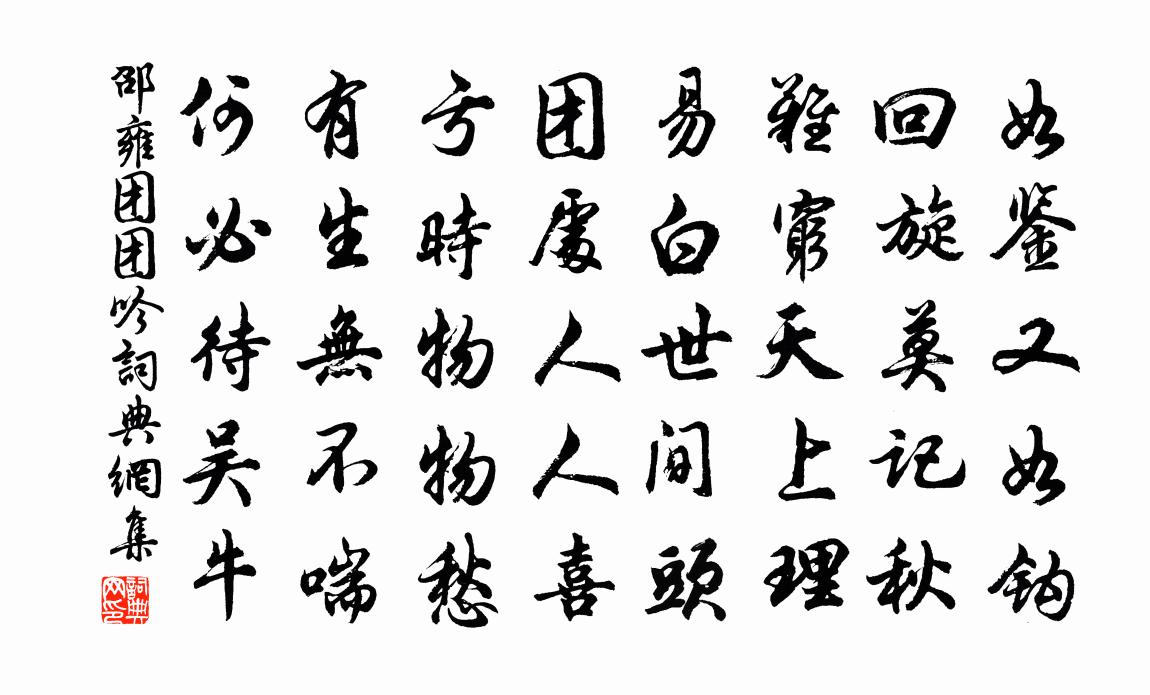 如鉴又如钩
回旋莫记秋
難窮天上理
易白世间頭
团處人人喜
亏時物物愁
有生無不喘
何必待吴牛
邵雍团团吟詞典網集
詞典网印